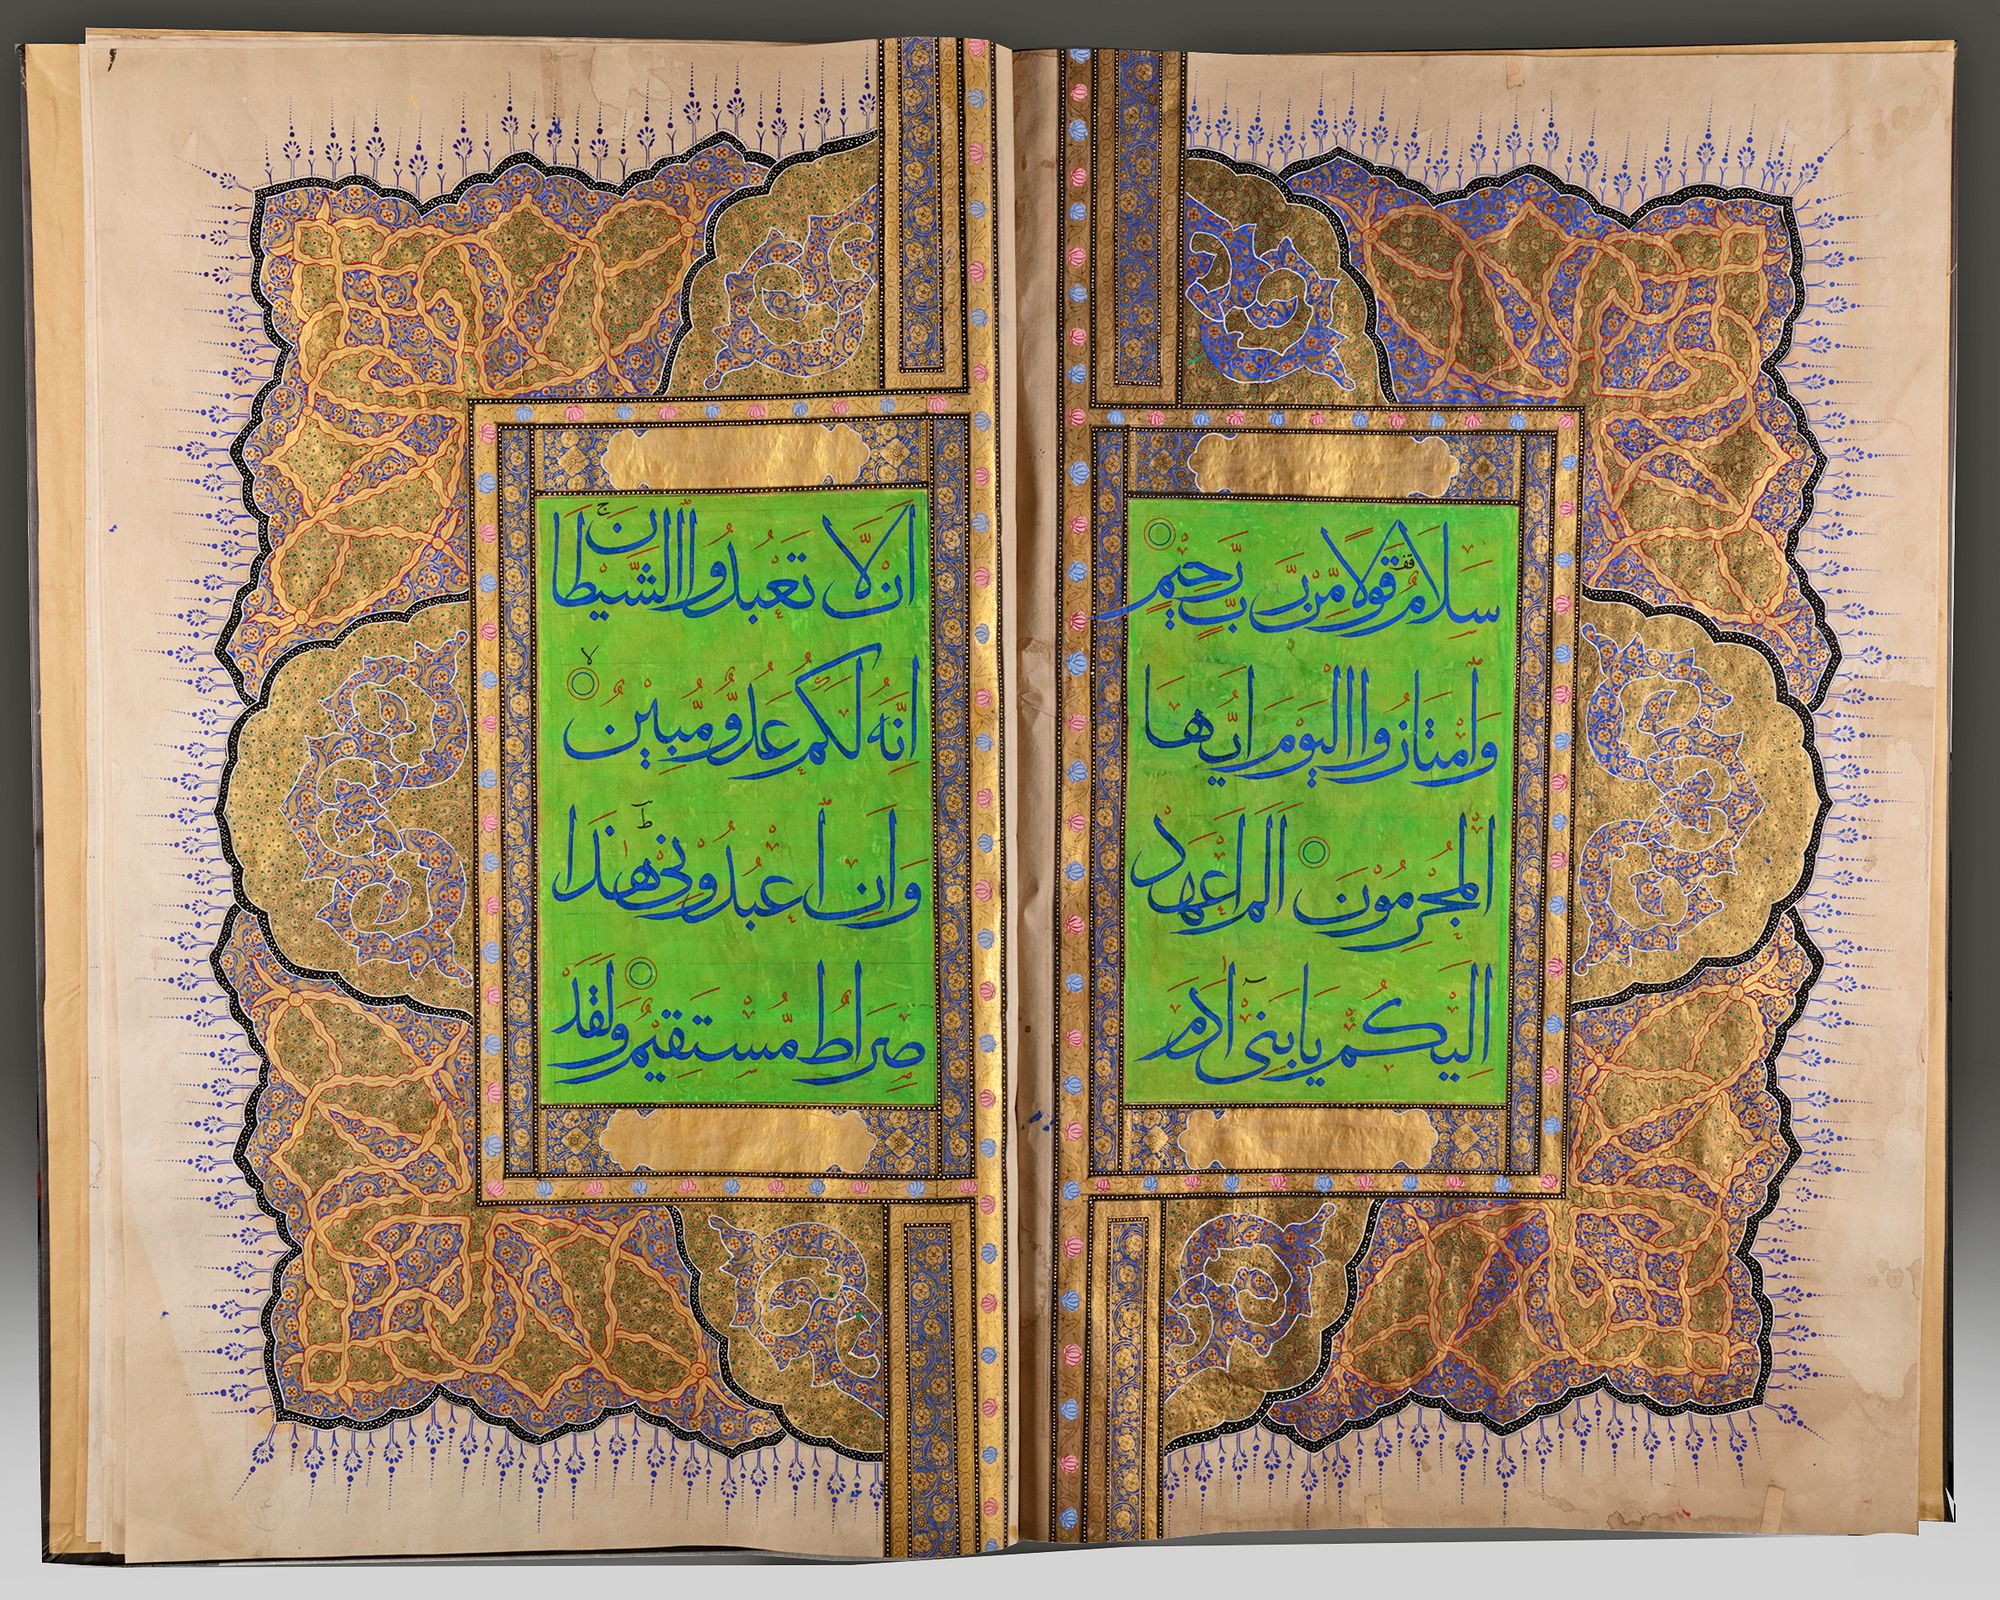 سَلَامٌ قَوْلًا مِّنْ رَّبٍّ رَّحِيْمٍ
وَامْتَازُوا الْيَوْمَ اَيُّهَا
الْمُجْرِمُوْنَ اَلَمْ اَعْهَدْ
اِلَيْكُمْ يَا بَنِيْ اٰدَمَ
اَنْ لَّا تَعْبُدُوا الشَّيْطَانَ ج
اِنَّهٗ لَكُمْ عَدُوٌّ مُّبِيْنٌ لا
وَاَنِ اعْبُدُوْنِيْ ط هٰذَا
صِرَاطٌ مُّسْتَقِيْمٌ وَلَقَدْ